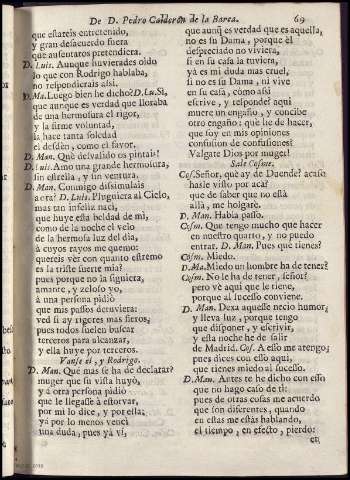 De D. Pedro Calderon de la Barca. 69
que estareis entretenido,
y gran desacuerdo fuera
que ausentaros pretendiera.
D. Luis. Aunque huvierades oldo
lo que con Rodrigo hablaba,
no respondierais assi.
D. Ma. Luego bien he dicho? D. Lu. Si,
que aunque es verdad que lloraba
de una hermosura el rigor,
y la firme voluntad,
la hace tanta soledad
el desdèn, como el favor.
D. Man. Què desvalido os pintais!
D. Luis. Amo una grande hermosura,
sin estrella, y sin ventura.
D. Man. Conmigo dissimulais
aora? D. Luis. Pluguiera al Cielo,
mas tan infeliz naci,
que huye esta beldad de mi,
como de la noche el velo
de la hermosa luz del dia,
à cuyos rayos me quemo:
quereis vèr con quanto estremo
es la triste suerte mia?
pues porque no la siguiera,
amante, y zeloso yo,
à una persona pidiò
que mis passos detuviera:
ved si ay rigores mas fieros,
pues todos suelen buscar
terceros para alcanzar,
y ella huye por terceros.
Vanse èl, y Rodrigo.
D. Man. Què mas se ha de declarar?
muger que su vista huyò,
y à otra persona pidiò
que le llegasse à estorvar,
por mi lo dice, y por ella;
yà por lo menos vencì
una duda, pues yà vì,
que aunq̃ es verdad que es aquella,
no es su Dama, porque èl
despreciado no viviera,
si en su casa la tuviera,
yà es mi duda mas cruel,
si no es su Dama, ni vive
en su casa, còmo assi
escrive, y responde? aqui
muere un engaño, y concibe
otro engaño: què he de hacer,
que soy en mis opiniones
confusion de confusiones!
Valgate Dios por muger!
Sale Cosme.
Cos. Señor, què ay de Duende? acaso
hasle visto por acà?
que de saber que no està
allà, me holgarè.
D. Man. Habla passo.
Cosm. Que tengo mucho que hacer
en nuestro quarto, y no puedo
entrar. D. Man. Pues què tienes?
Cosm. Miedo.
D. Ma. Miedo un hombre ha de tener?
Cosm. No le ha de tener, señor?
pero vè aqui que le tiene,
porque al sucesso conviene.
D. Man. Dexa aquesse necio humor,
y lleva luz, porque tengo
que disponer, y escrivir,
y esta noche he de salir
de Madrid. Cos. A esso me atengo;
pues dices con esso aqui,
que tienes miedo al sucesso.
D. Man. Antes te he dicho con esso
que no hago caso de ti:
pues de otras cosas me acuerdo
que son diferentes, quando
en estas me estàs hablando,
el tiempo, en efecto, pierdo:
en